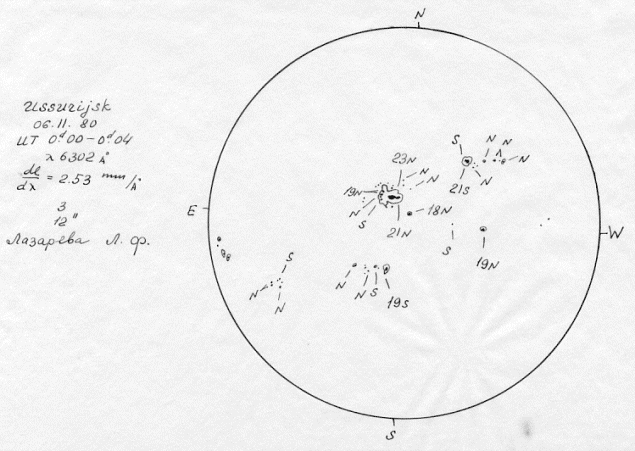 Ussurijsk
06.11.80
UT 0ᵈ00-0ᵈ.04
λ 6302 Å
dl/dλ = 2.53 mm/Å
3
12"
Лазарева Л. Ф.
N
S
N
N
N
23N
N
N
21S
N
19N
N
S
21N
18N
E
W
S
19N
S
N
N
N
N
S
19S
S